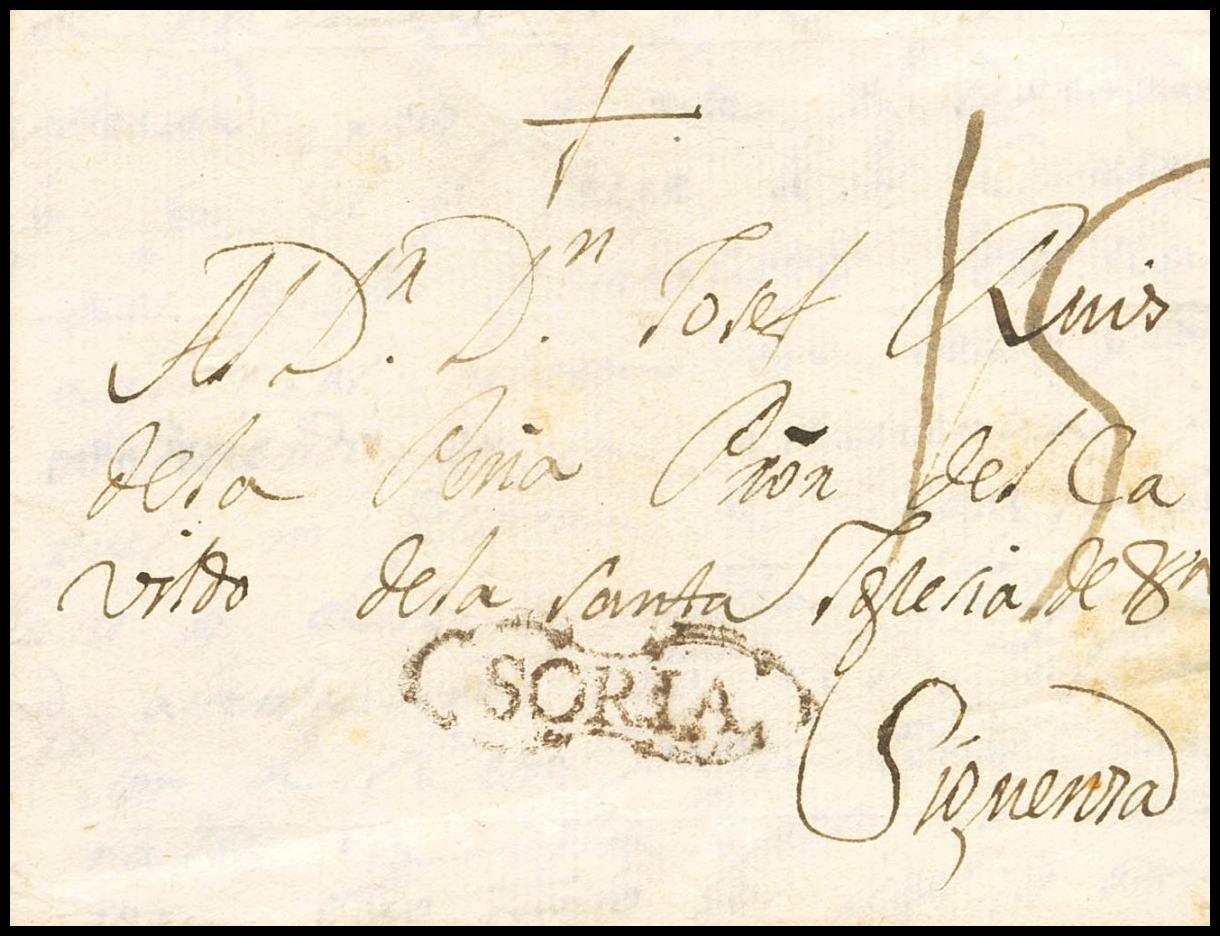 Al Dn. Dn. Josef Ruis
dela Peña Prior del Ca
vildo dela santa Iglesia de
SORIA
Siguenza